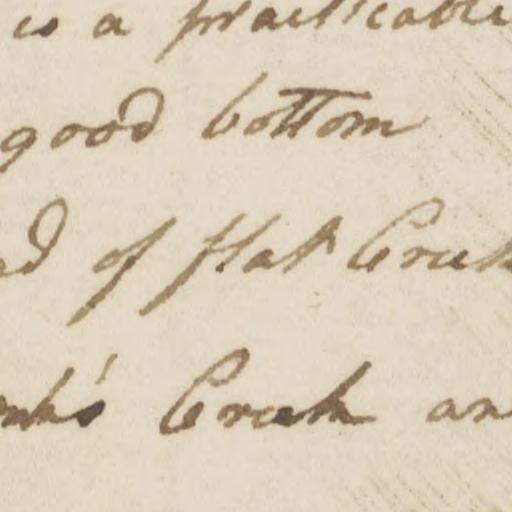 is a practicable
good bottom
of flat Creek
Creek an